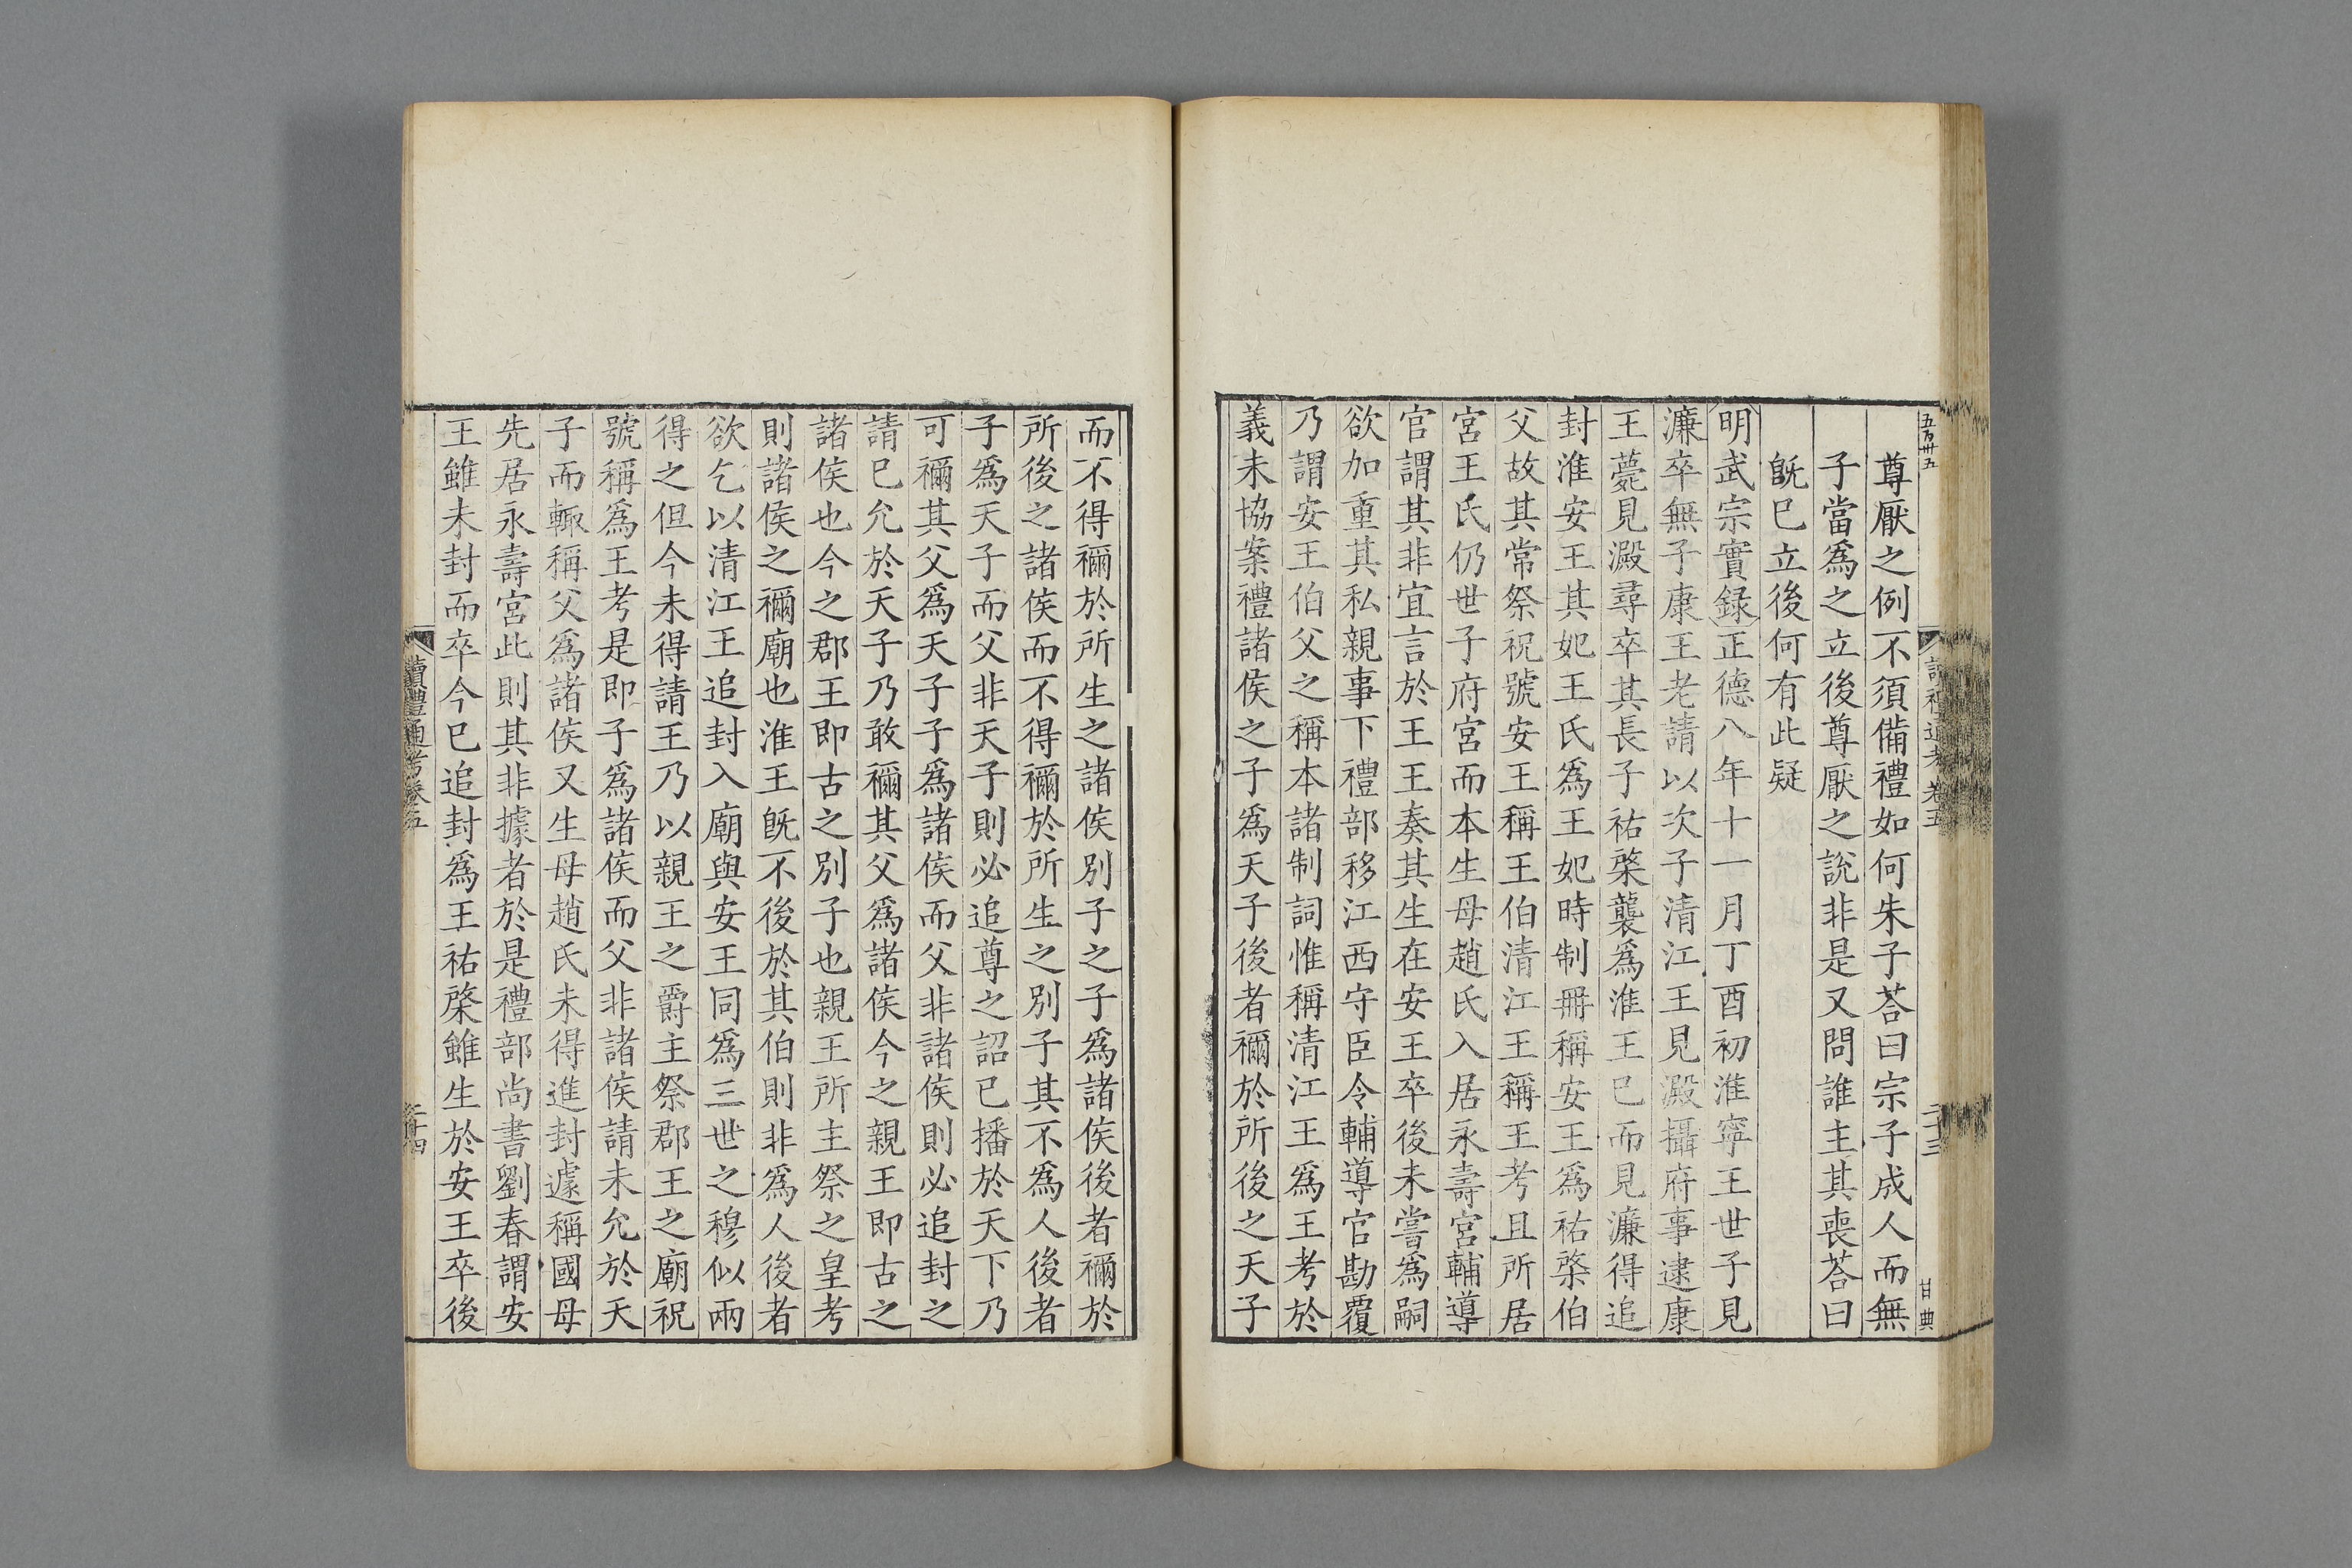 五百卅五
讀禮通考卷五
二十三
甘典
尊厭之例不須備禮如何朱子荅曰宗子成人而無
子當爲之立後尊厭之說非是又問誰主其喪荅曰
旣已立後何有此疑
明武宗實録正德八年十一月丁酉初淮寧王世子見
濂卒無子康王老請以次子清江王見澱攝府事逮康
王薨見澱尋卒其長子祐棨襲爲淮王已而見濂得追
封淮安王其妃王氏爲王妃時制冊稱安王爲祐棨伯
父故其常祭祝號安王稱王伯清江王稱王考且所居
宮王氏仍世子府宮而本生母趙氏入居永壽宮輔導
官謂其非宜言於王王奏其生在安王卒後未嘗爲嗣
欲加重其私親事下禮部移江西守臣令輔導官勘覆
乃謂安王伯父之稱本諸制詞惟稱清江王爲王考於
義未協案禮諸侯之子爲天子後者禰於所後之天子
而不得禰於所生之諸侯別子之子爲諸侯後者禰於
所後之諸侯而不得禰於所生之別子其不爲人後者
子爲天子而父非天子則必追尊之詔已播於天下乃
可禰其父爲天子子爲諸侯而父非諸侯則必追封之
請已允於天子乃敢禰其父爲諸侯今之親王即古之
諸侯也今之郡王即古之別子也親王所主祭之皇考
則諸侯之禰廟也淮王旣不後於其伯則非爲人後者
欲乞以清江王追封入廟與安王同爲三世之穆似兩
得之但今未得請王乃以親王之爵主祭郡王之廟祝
號稱爲王考是即子爲諸侯而父非諸侯請未允於天
子而輙稱父爲諸侯又生母趙氏未得進封遽稱國母
先居永壽宮此則其非據者於是禮部尚書劉春謂安
王雖未封而卒今已追封爲王祐棨雖生於安王卒後
讀禮通考卷五
二十四